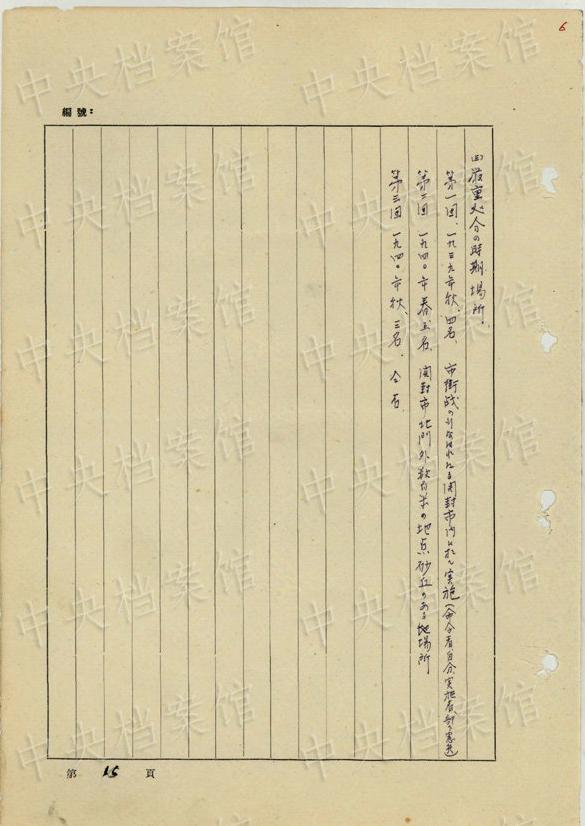 6
編號：
(三)厳重処分の時期.場所.
第一回、一九三九年秋、四名、市街戦の行なはれたる開封市内に於て実施(命令者自分、実施者部下憲兵)
第二回 一九四〇年春五名、開封市北門外数百米の地点、砂丘のある場所
第三回 一九四〇年秋、三名、仝右
第 15 頁
中央档案馆